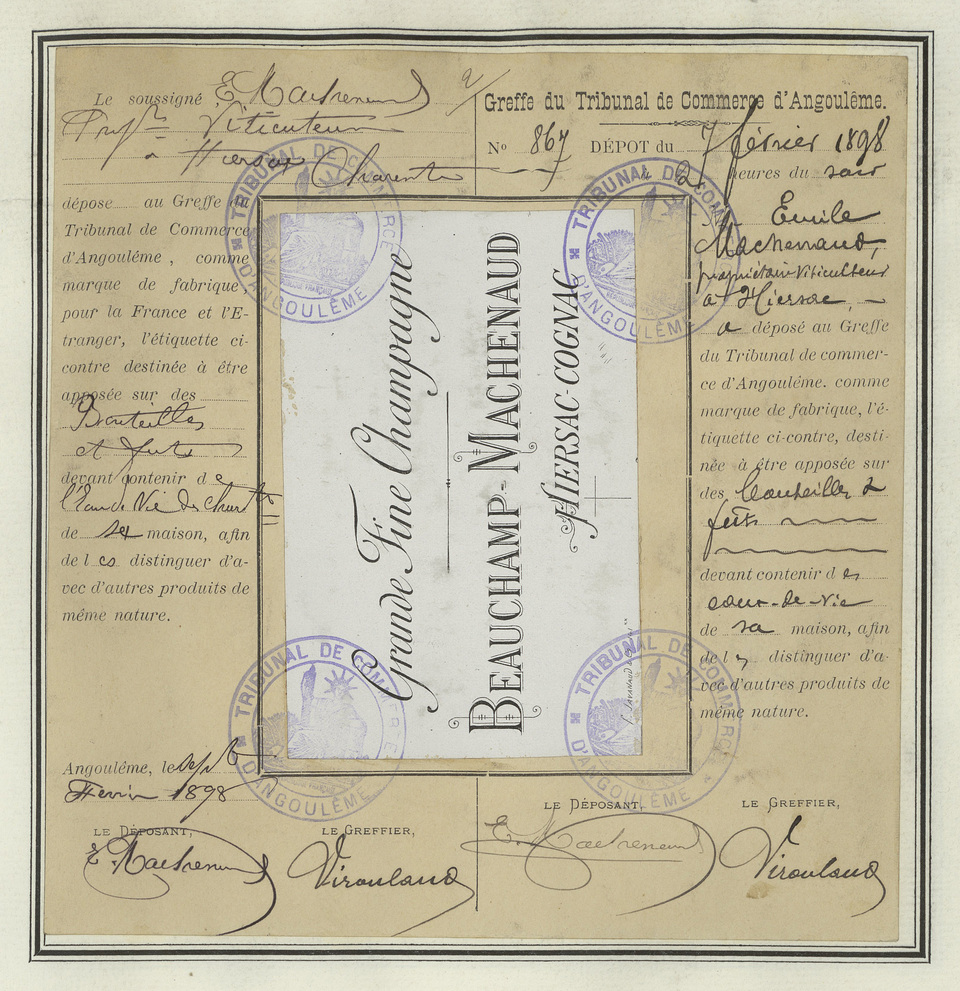 Le soussigné E. Machenaud
Propre Viticulteur
a Hiersac Charente
dépose au Greffe du
Tribunal de Commerce
d'Angoulême, comme
marque de fabrique
pour la France et l'E-
tranger, l'étiquette ci-
contre destinée à être
apposée sur des
Bouteilles
et futs
devant contenir de
l'Eau de Vie de
de sa maison, afin
de les distinguer d'a-
vec d'autres produits de
même nature.
Angoulême, le sept
Février 1898
LE DÉPOSANT,
E. Machenaud
LE GREFFIER,
Viroulaud
Greffe du Tribunal de Commerce d'Angoulême.
No 867 DÉPOT du 7 février 1898
à 2 heures du soir
Emile
Machenaud,
propriétaire Viticulteur
à Hiersac,
a déposé au Greffe
du Tribunal de commer-
ce d'Angoulême. comme
marque de fabrique, l'é-
tiquette ci-contre, desti-
née à être apposée sur
des bouteilles &
futs
devant contenir des
eaux-de-vie
de sa maison, afin
de les distinguer d'a-
vec d'autres produits de
même nature.
LE DÉPOSANT,
E. Machenaud
LE GREFFIER,
Viroulaud
Grande Fine Champagne
BEAUCHAMP-MACHENAUD
HIERSAC-COGNAC
TRIBUNAL DE COMMERCE
D'ANGOULÊME
TRIBUNAL DE COMMERCE
D'ANGOULÊME
TRIBUNAL DE COMMERCE
D'ANGOULÊME
TRIBUNAL DE COMMERCE
D'ANGOULÊME